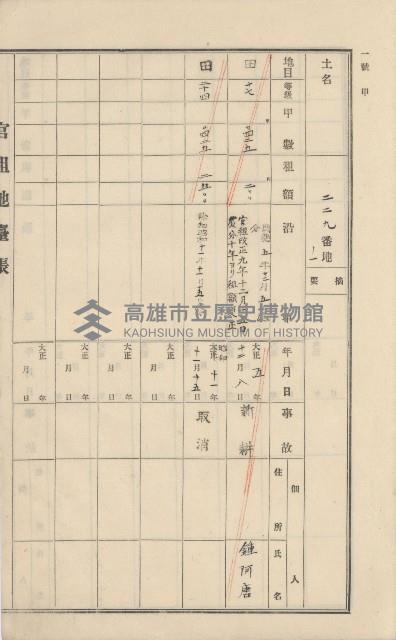 一號甲
土名
二二九番地ノ一
摘要
地目 等級 甲數 租額 沿革 年月日 事故 佃人
住所 氏名
田 十七 〇四二五 二〇〇
五年十二月五日
官租改正九年十二月
十年ヨリ租額
大正五年十二月八日 新耕
鍾阿唐
田 二十四 〇四二五 二五〇〇
昭和十一年十一月十五日
大正 昭和 十一年十一月十五日 取消
大正 年 月 日
大正 年 月 日
大正 年 月 日
官租地臺帳
高雄市立歷史博物館
KAOHSIUNG MUSEUM OF HISTORY